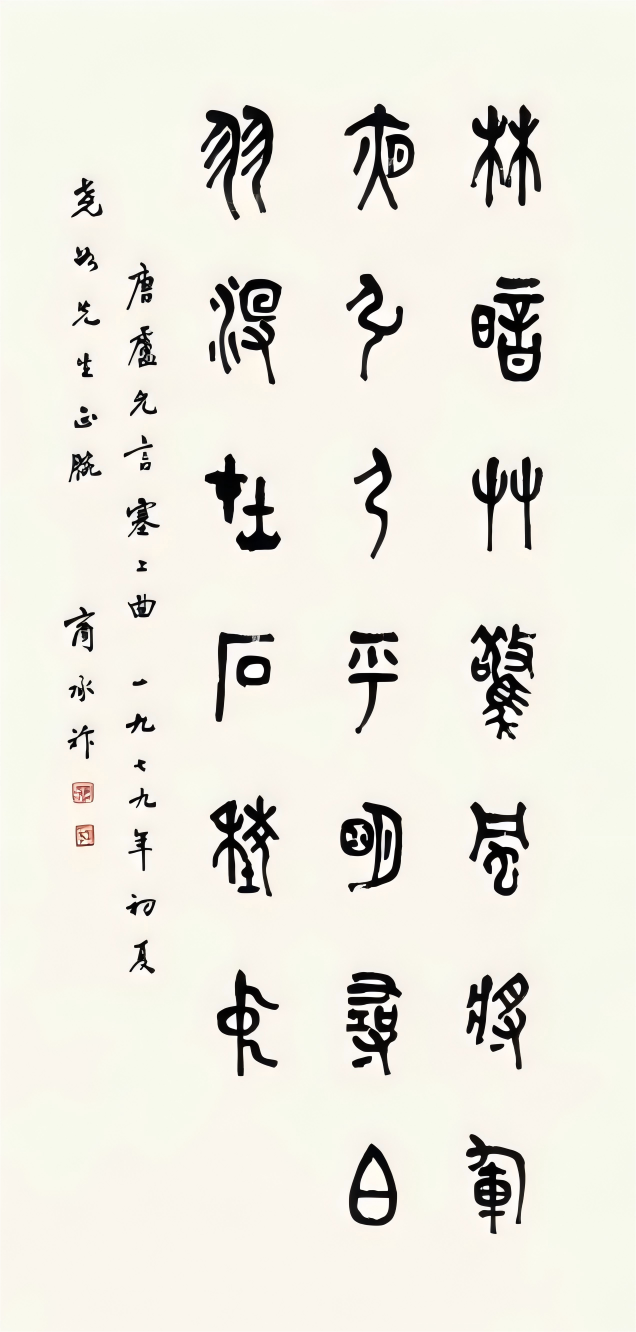 林暗艸驚風將軍
夜引弓平明尋白
羽沒在石稜中
唐盧允言塞上曲 一九七九年初夏
堯 先生正腕 商承祚